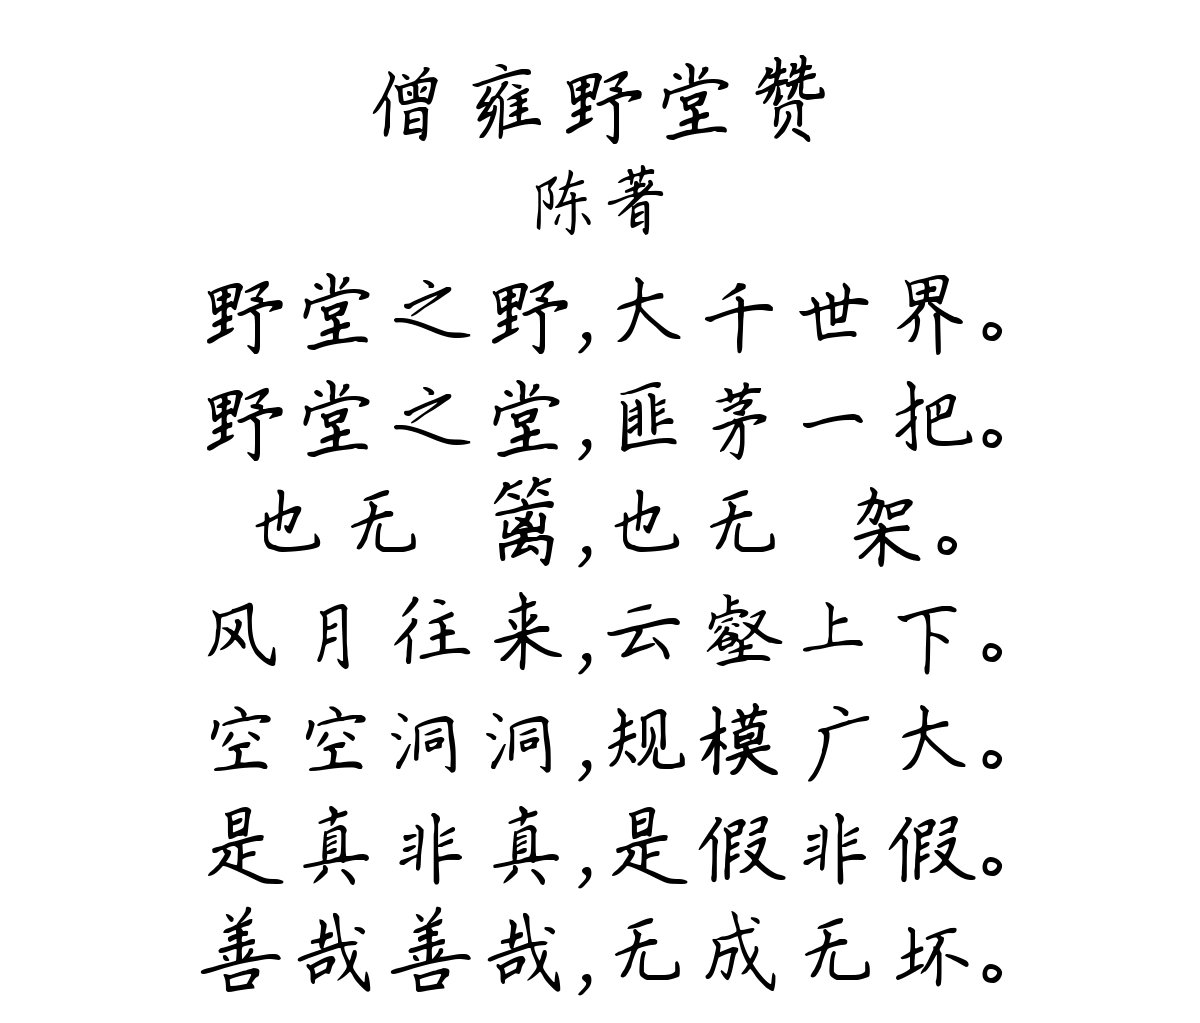 僧雍野堂赞
陈著
野堂之野,大千世界。
野堂之堂,匪茅一把。
也无 篱,也无 架。
风月往来,云壑上下。
空空洞洞,规模广大。
是真非真,是假非假。
善哉善哉,无成无坏。